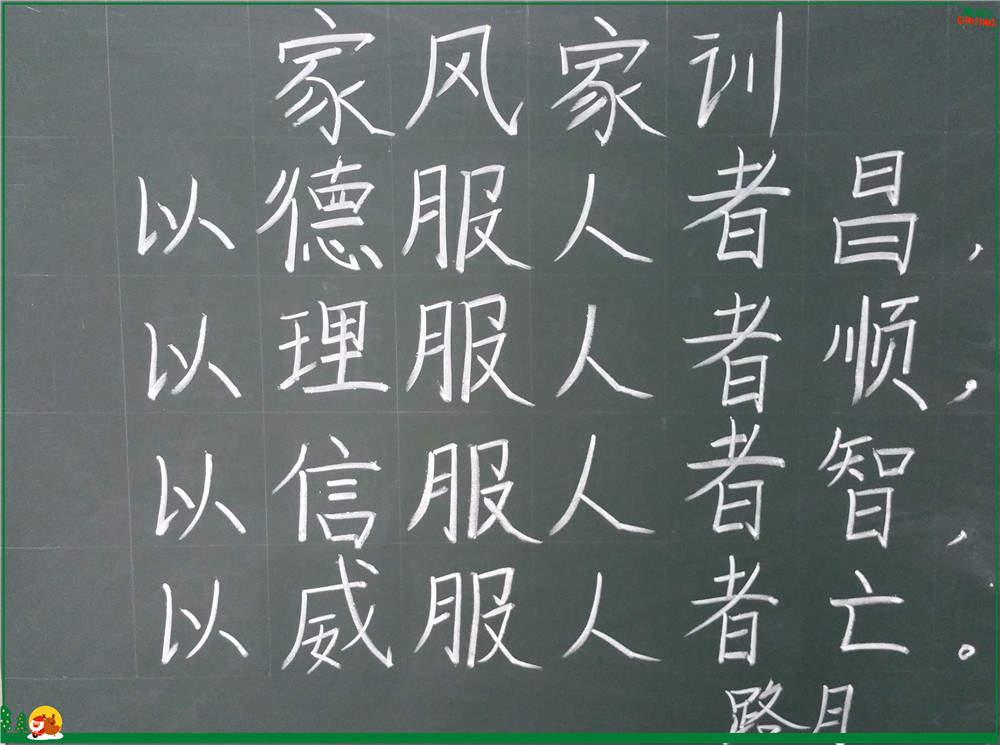 家风家训
以德服人者昌，
以理服人者顺，
以信服人者智，
以威服人者亡。
路月